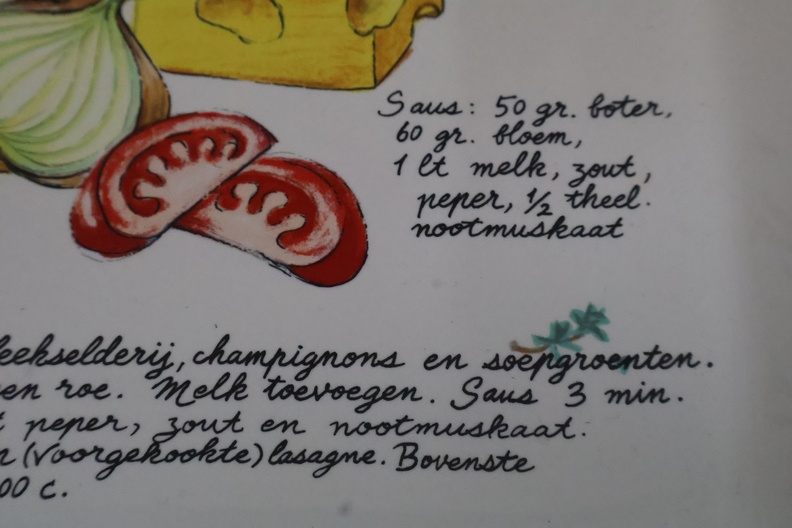 Saus: 50 gr. boter,
60 gr. bloem,
1 lt melk, zout,
peper, ½ theel.
nootmuskaat
leekselderij, champignons en soepgroenten.
en roe. Melk toevoegen. Saus 3 min.
t peper, zout en nootmuskaat.
n (voorgekookte) lasagne. Bovenste
00 c.